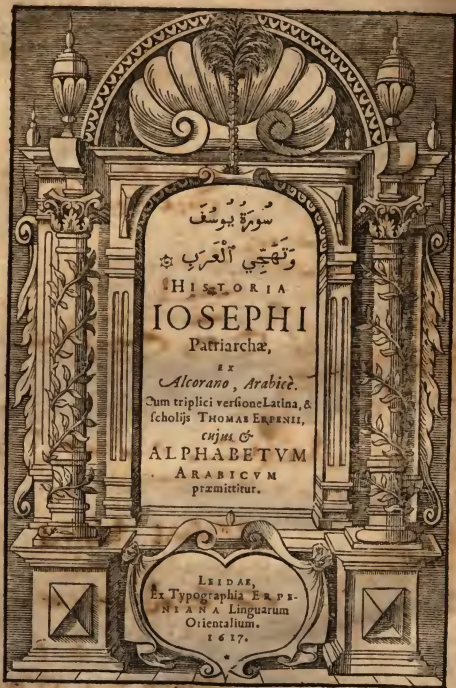 سُورَةُ يُوسُفَ
وَتَهَجِّي ٱلْعَرَبِ
HISTORIA
IOSEPHI
Patriarchæ,
EX
Alcorano, Arabicè.
Cum triplici verſione Latina, &
ſcholijs THOMAE ERPENII,
cujus &
ALPHABETVM
ARABICVM
præmittitur.
LEIDAE,
Ex Typographia ERPE-
NIANA Linguarum
Orientalium.
1617.